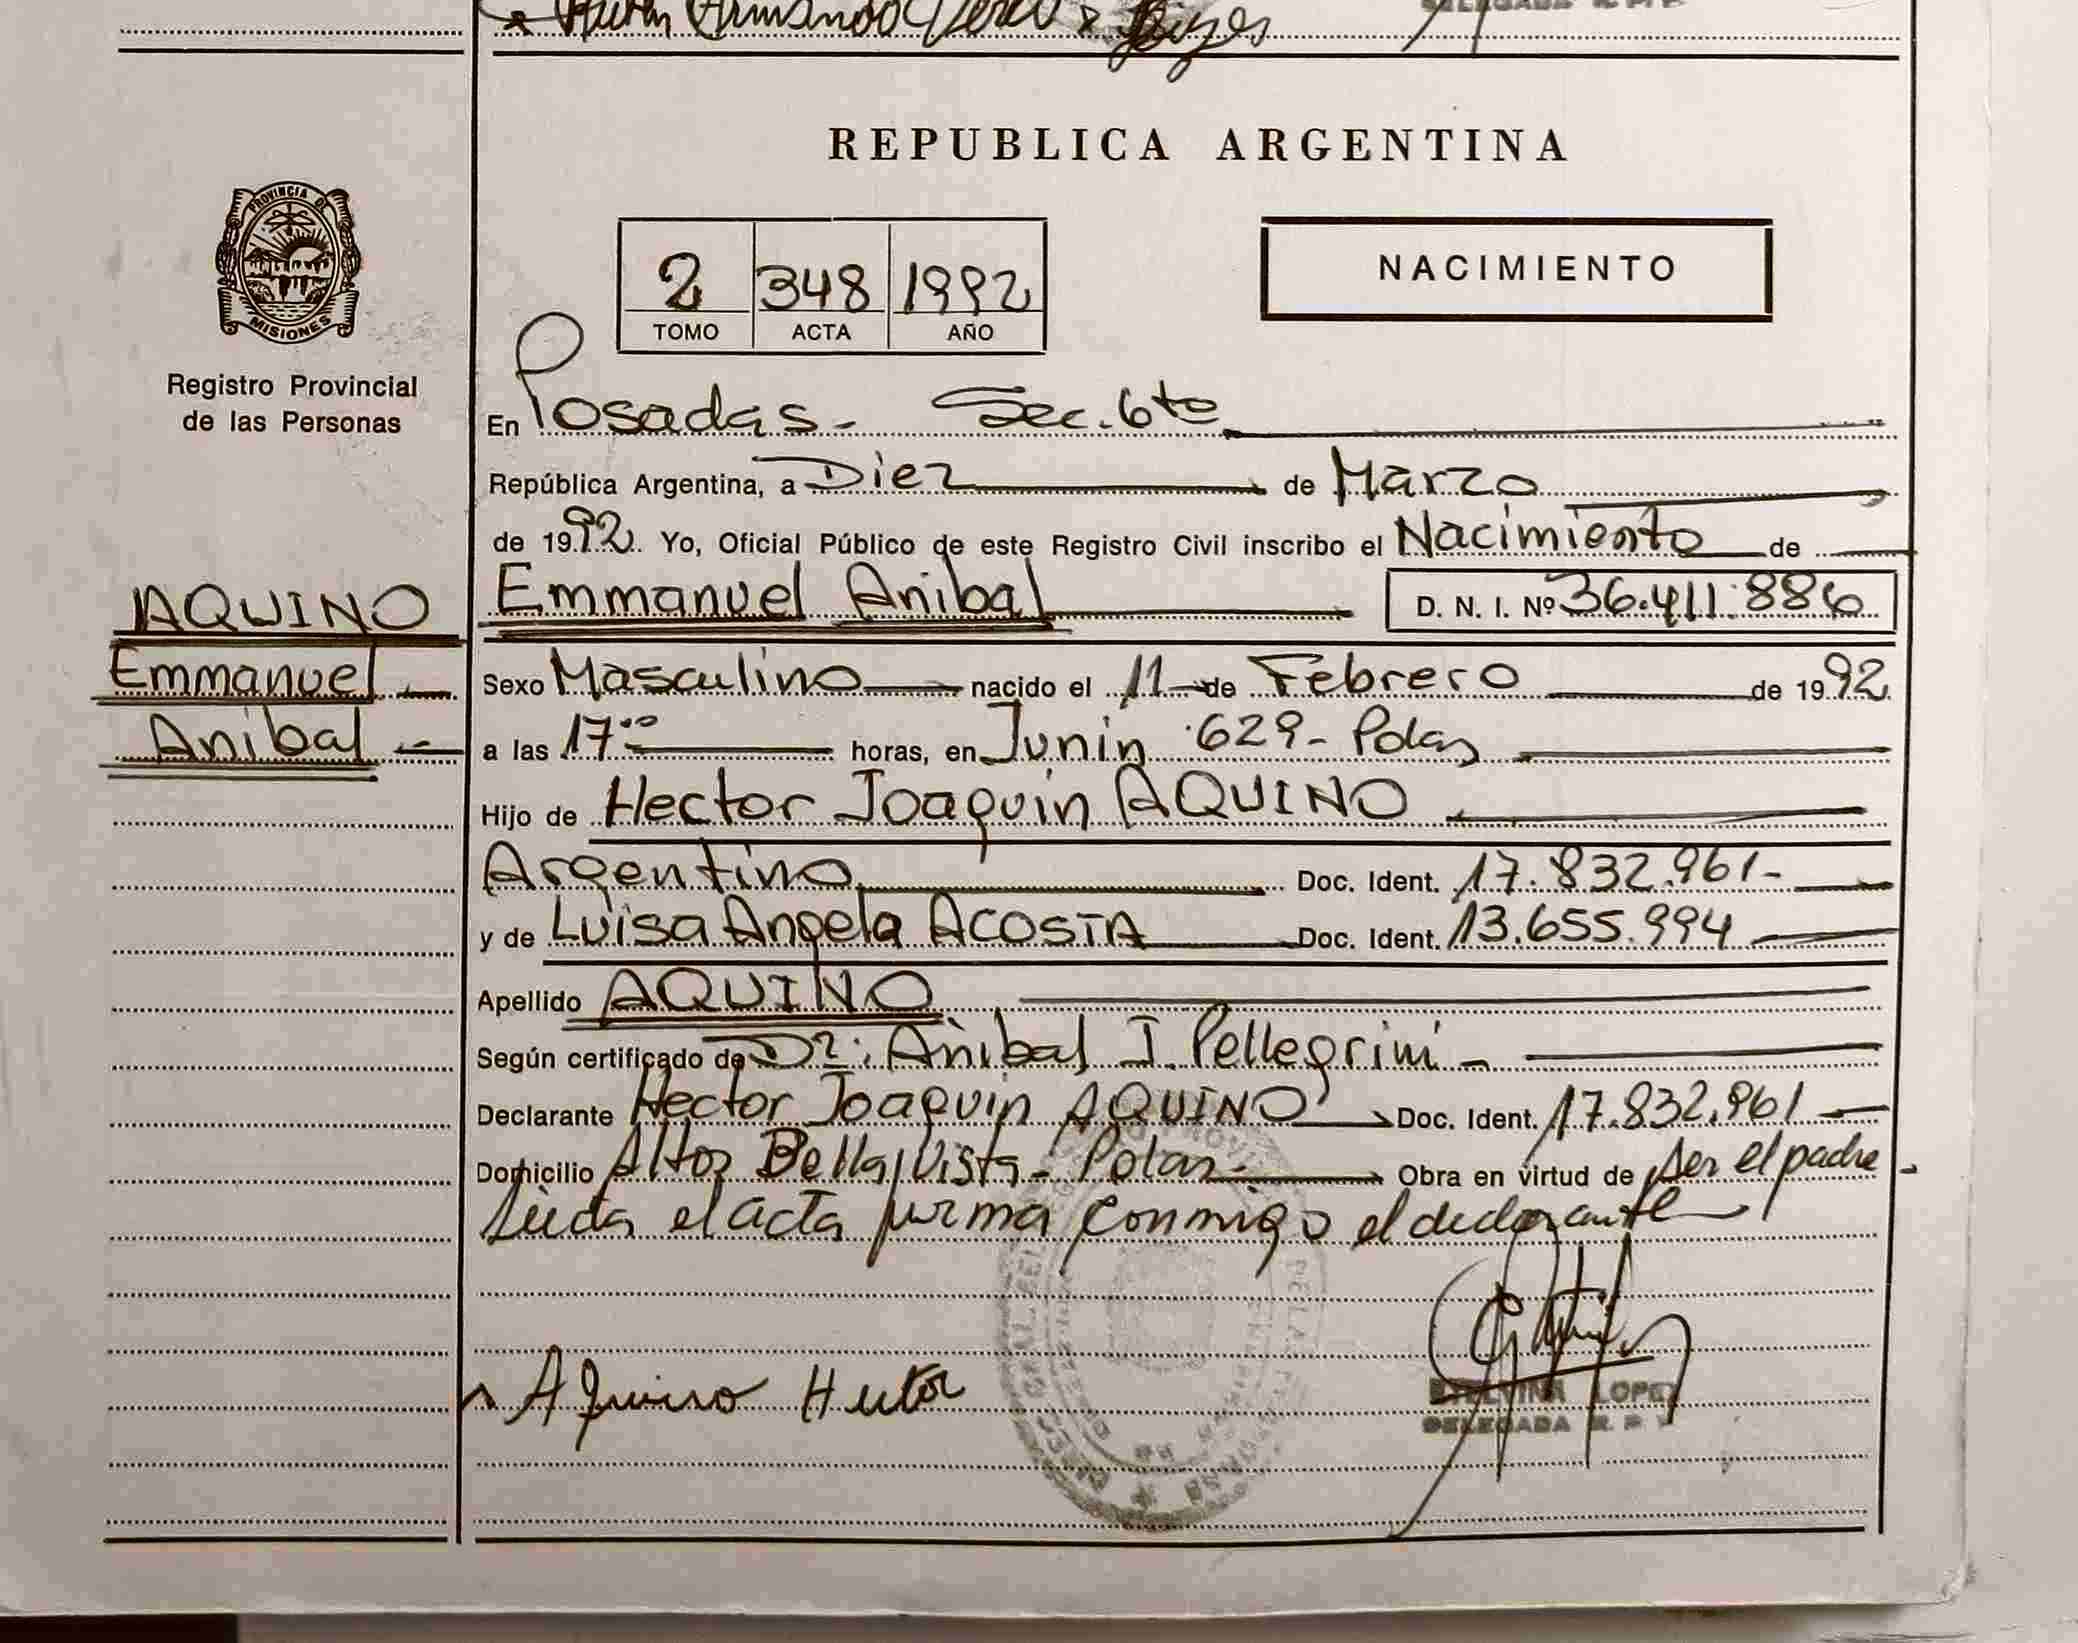 Armando
DELEGADA R. P. P.
REPUBLICA ARGENTINA
PROVINCIA DE
MISIONES
Registro Provincial
de las Personas
2 348 1992
TOMO ACTA AÑO
NACIMIENTO
En Posadas - Sec. 6ta
República Argentina, a Diez de Marzo
de 1992. Yo, Oficial Público de este Registro Civil inscribo el Nacimiento de
AQUINO
Emmanuel
Anibal
Emmanuel Anibal D. N. I. Nº 36.411.886
Sexo Masculino nacido el 11 de Febrero de 1992
a las 17.00 horas, en Junin 629 - Pdas
Hijo de Hector Joaquin AQUINO
Argentino Doc. Ident. 17.832.961-
y de Luisa Angela ACOSTA Doc. Ident. 13.655.994
Apellido AQUINO
Según certificado de Dr. Anibal J. Pellegrini -
Declarante Hector Joaquin AQUINO Doc. Ident. 17.832.961
Domicilio Altos Bella Vista - Pdas. Obra en virtud de ser el padre
Leida el acta firma conmigo el declarante
Aquino Hector
LOPEZ
DELEGADA R. P. P.